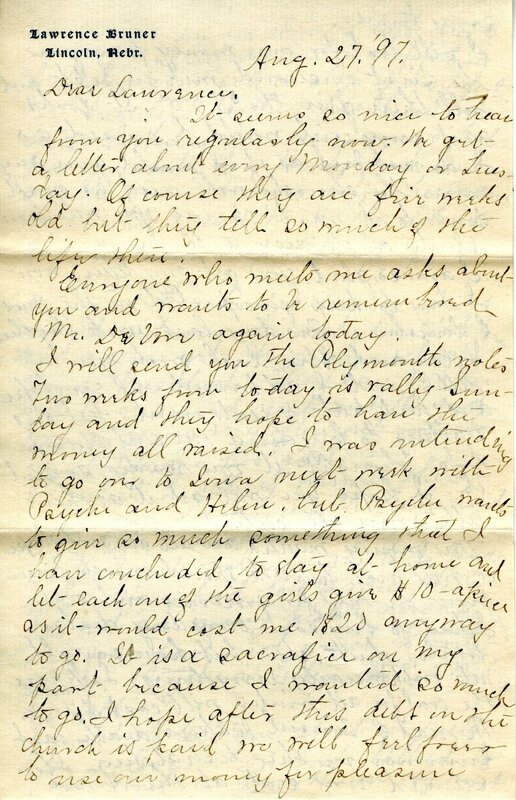 Lawrence Bruner
Lincoln, Nebr.
Aug. 27. '97.
Dear Lawrence.
It seems so nice to hear
from you regularly now. We get
a letter about every Monday or Tues-
day. Of course they are five weeks
old but they tell so much of the
life there.
Everyone who meets me asks about
you and wants to be remembered
Mr. DeVore again today.
I will send you the Plymouth notes
Two weeks from today is rally Sun-
day and they hope to have the
money all raised. I was intending
to go over to Iowa next week with
Psyche and Helen. but Psyche wants
to give so much something that I
have concluded to stay at home and
let each one of the girls give $10 - apiece
as it would cost me $20 anyway
to go. It is a sacrafice on my
part because I wanted so much
to go. I hope after this debt on the
church is paid we will feel freer
to use our money for pleasure